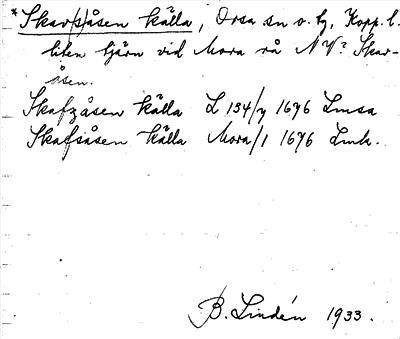 *Skar(s)åsen källa, Orsa sn o. tg, Kopp. l.
liten tjärn vid Mora rå NV? Skar-
åsen.
Skafzåsen källa L 134/y 1676 Lmsa
Skafsåsen källa Mora/1 1676 Lmk.
B. Lindén 1933.